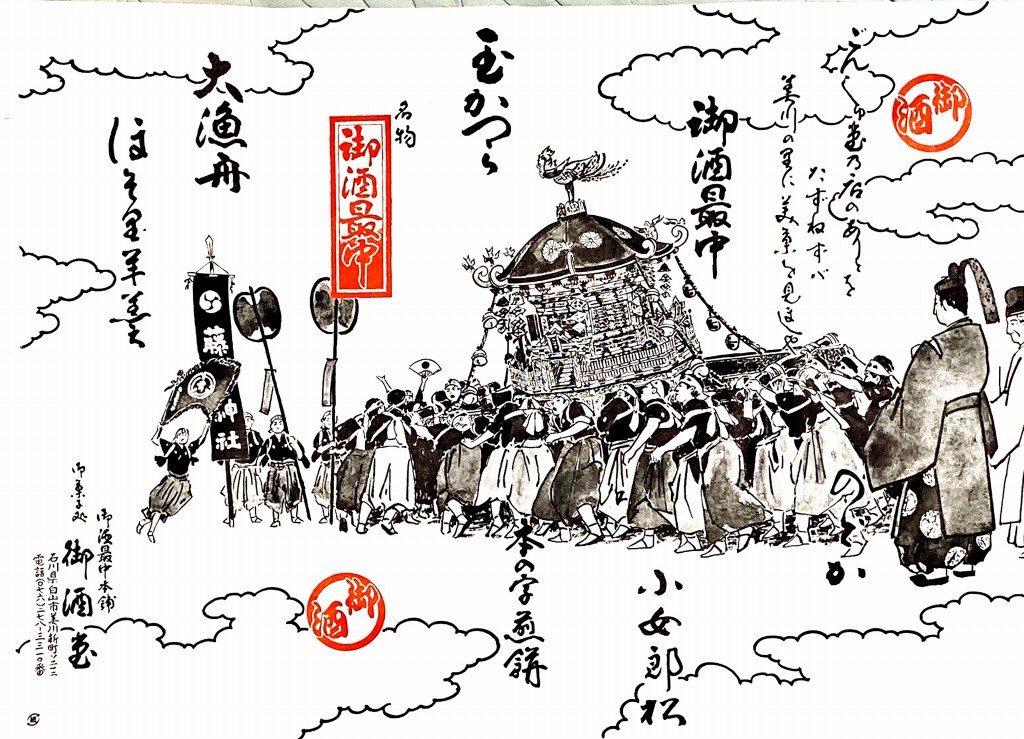 御酒
ごんしゅ堂乃店のありかを
たずねずバ
美川の里に美菓を見
御酒最中
玉かつら
名物
御酒最中
大漁舟
羊羹
藤
神社
のどか
小女郎松
本の字煎餅
御酒
御菓子処
御酒最中本舗
御酒堂
石川県白山市美川新町ソ二三
電話(〇七六)二七八